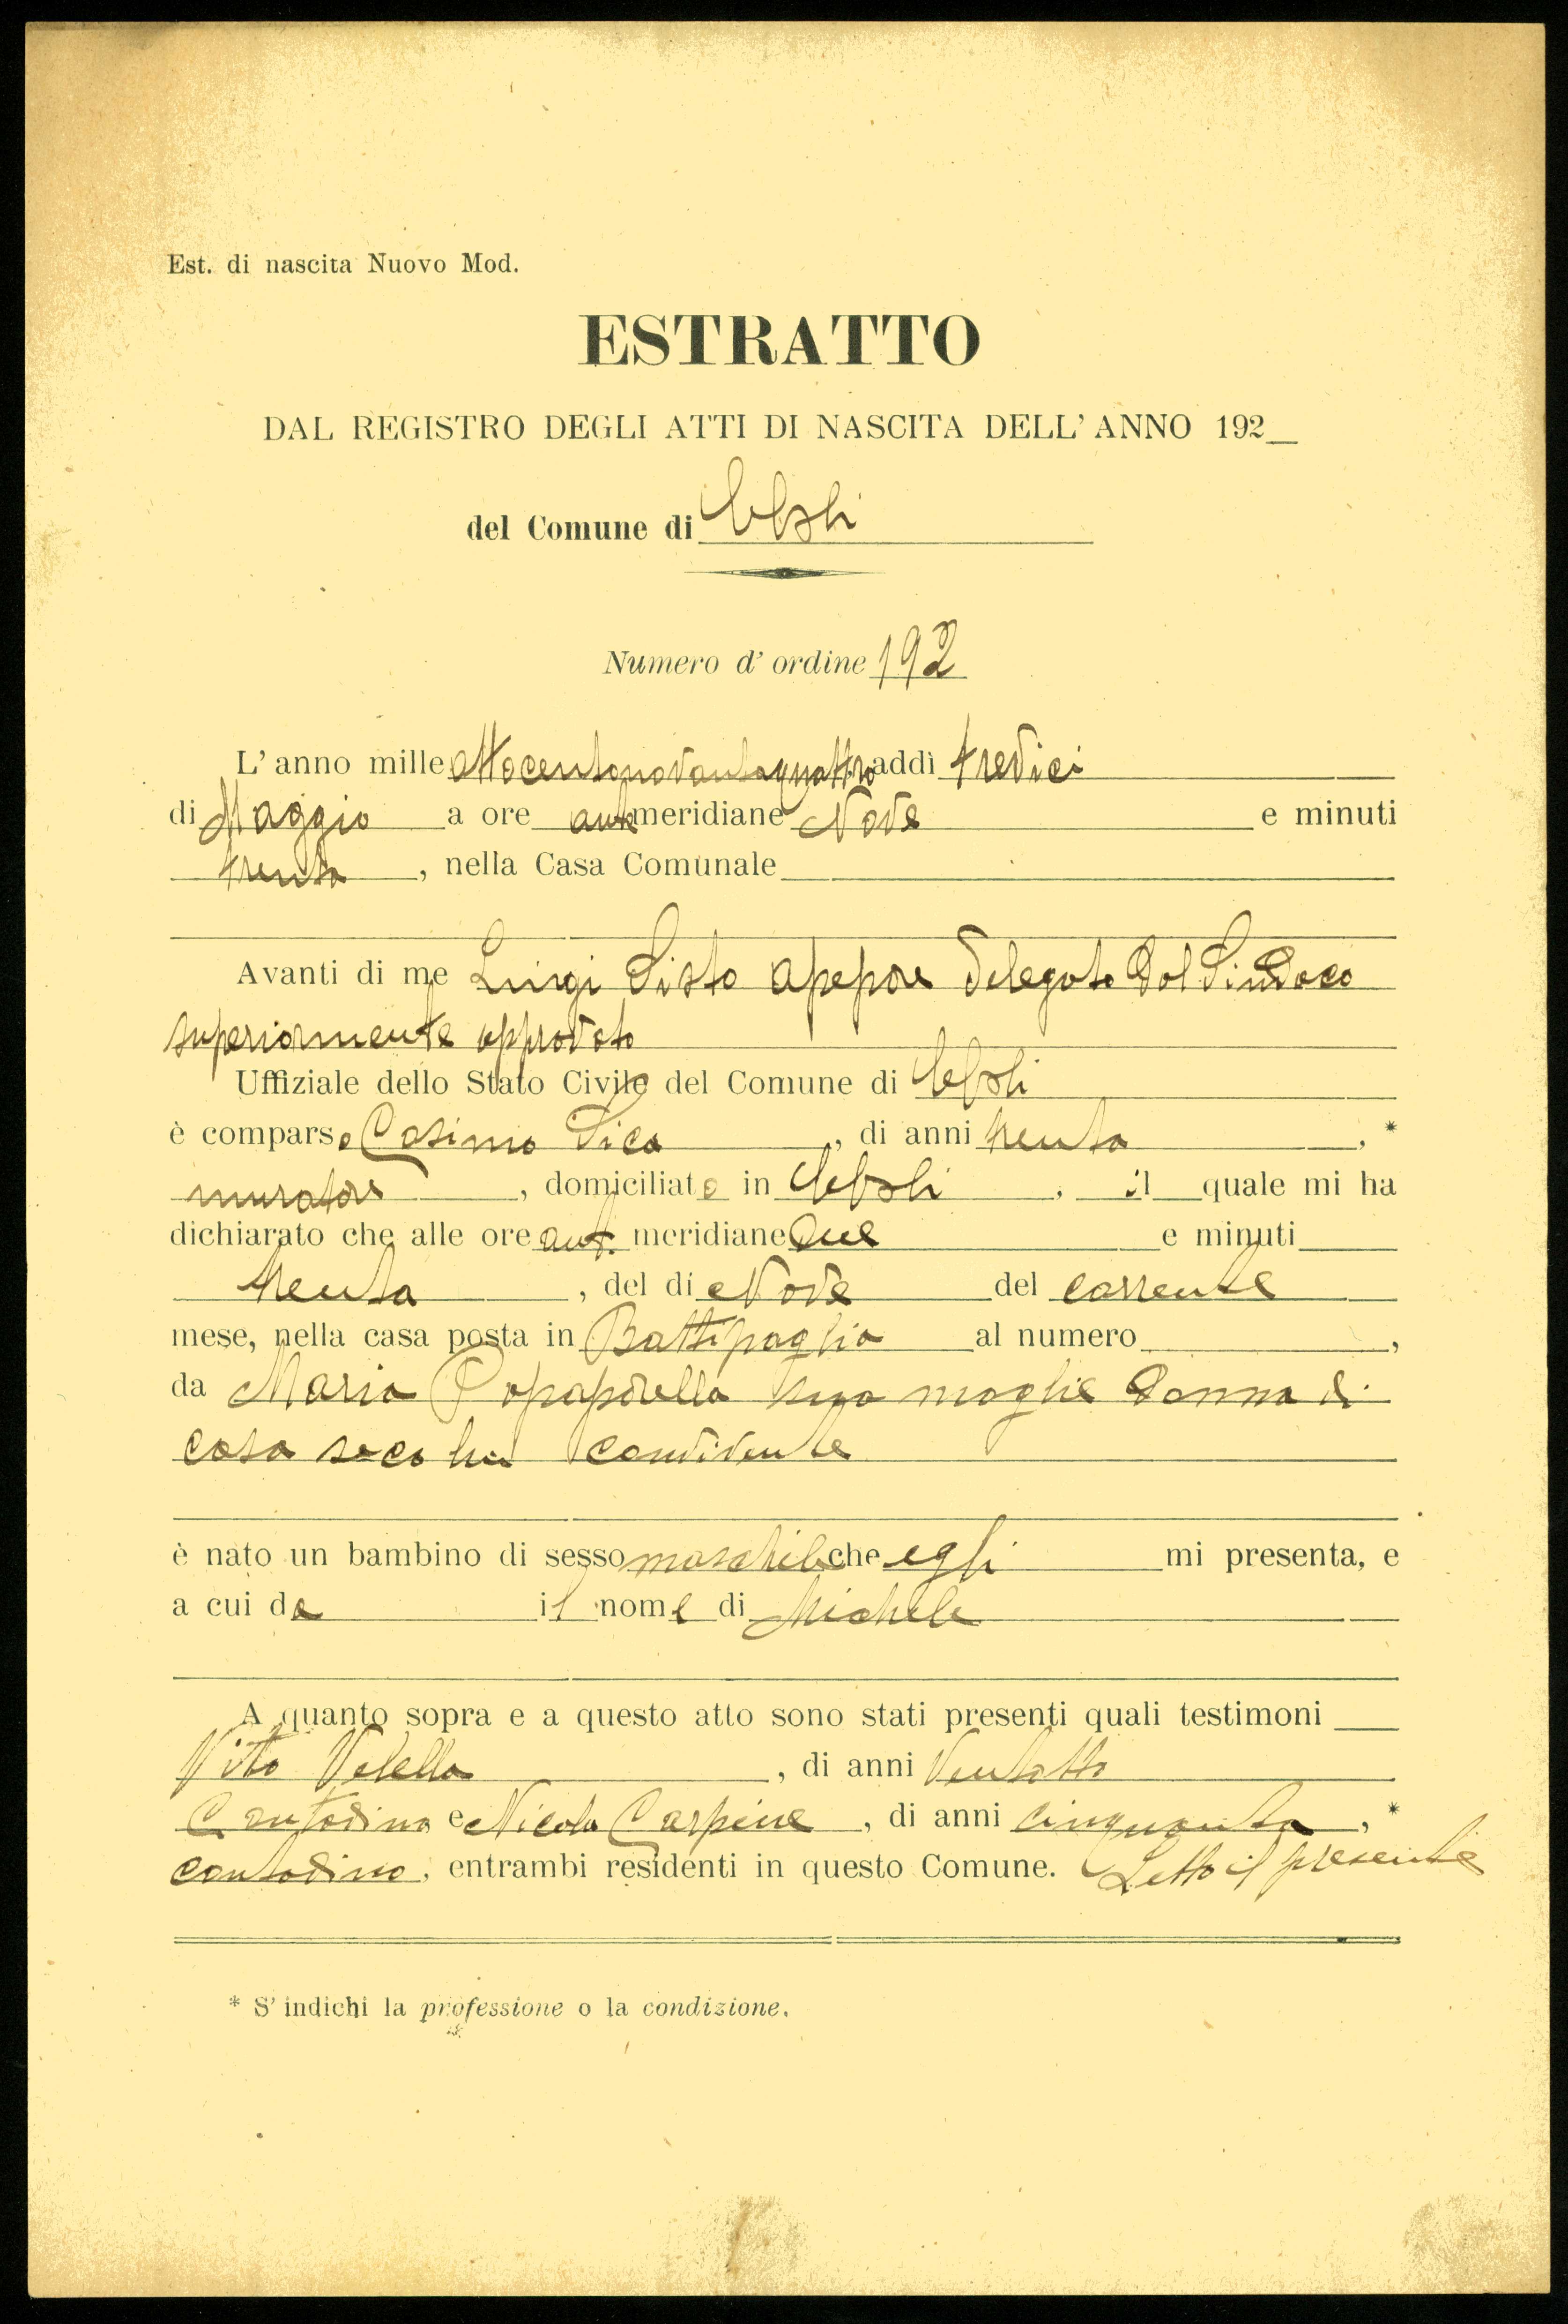 Est. di nascita Nuovo Mod.
ESTRATTO
DAL REGISTRO DEGLI ATTI DI NASCITA DELL' ANNO 192_
del Comune di Eboli
Numero d' ordine 192
L' anno mille ottocentonovantaquattro addì tredici
di Maggio a ore antemeridiane Nove e minuti
trenta, nella Casa Comunale
Avanti di me Luigi Sisto delegato dal Sindaco
superiormente approvato
Uffiziale dello Stato Civile del Comune di Eboli
è comparso Cosimo Sica, di anni trenta, *
muratore, domiciliato in Eboli, il quale mi ha
dichiarato che alle ore ant. meridiane due e minuti
trenta, del dì Nove del corrente
mese, nella casa posta in Battipaglia al numero ,
da Maria sua moglie donna di
casa seco lui convivente
è nato un bambino di sesso maschile che egli mi presenta, e
a cui da il nome di Michele
A quanto sopra e a questo atto sono stati presenti quali testimoni
Vito, di anni Ventotto
Contadino e Nicola Carpine, di anni cinquanta, *
contadino, entrambi residenti in questo Comune. Letto il presente
* S' indichi la professione o la condizione.